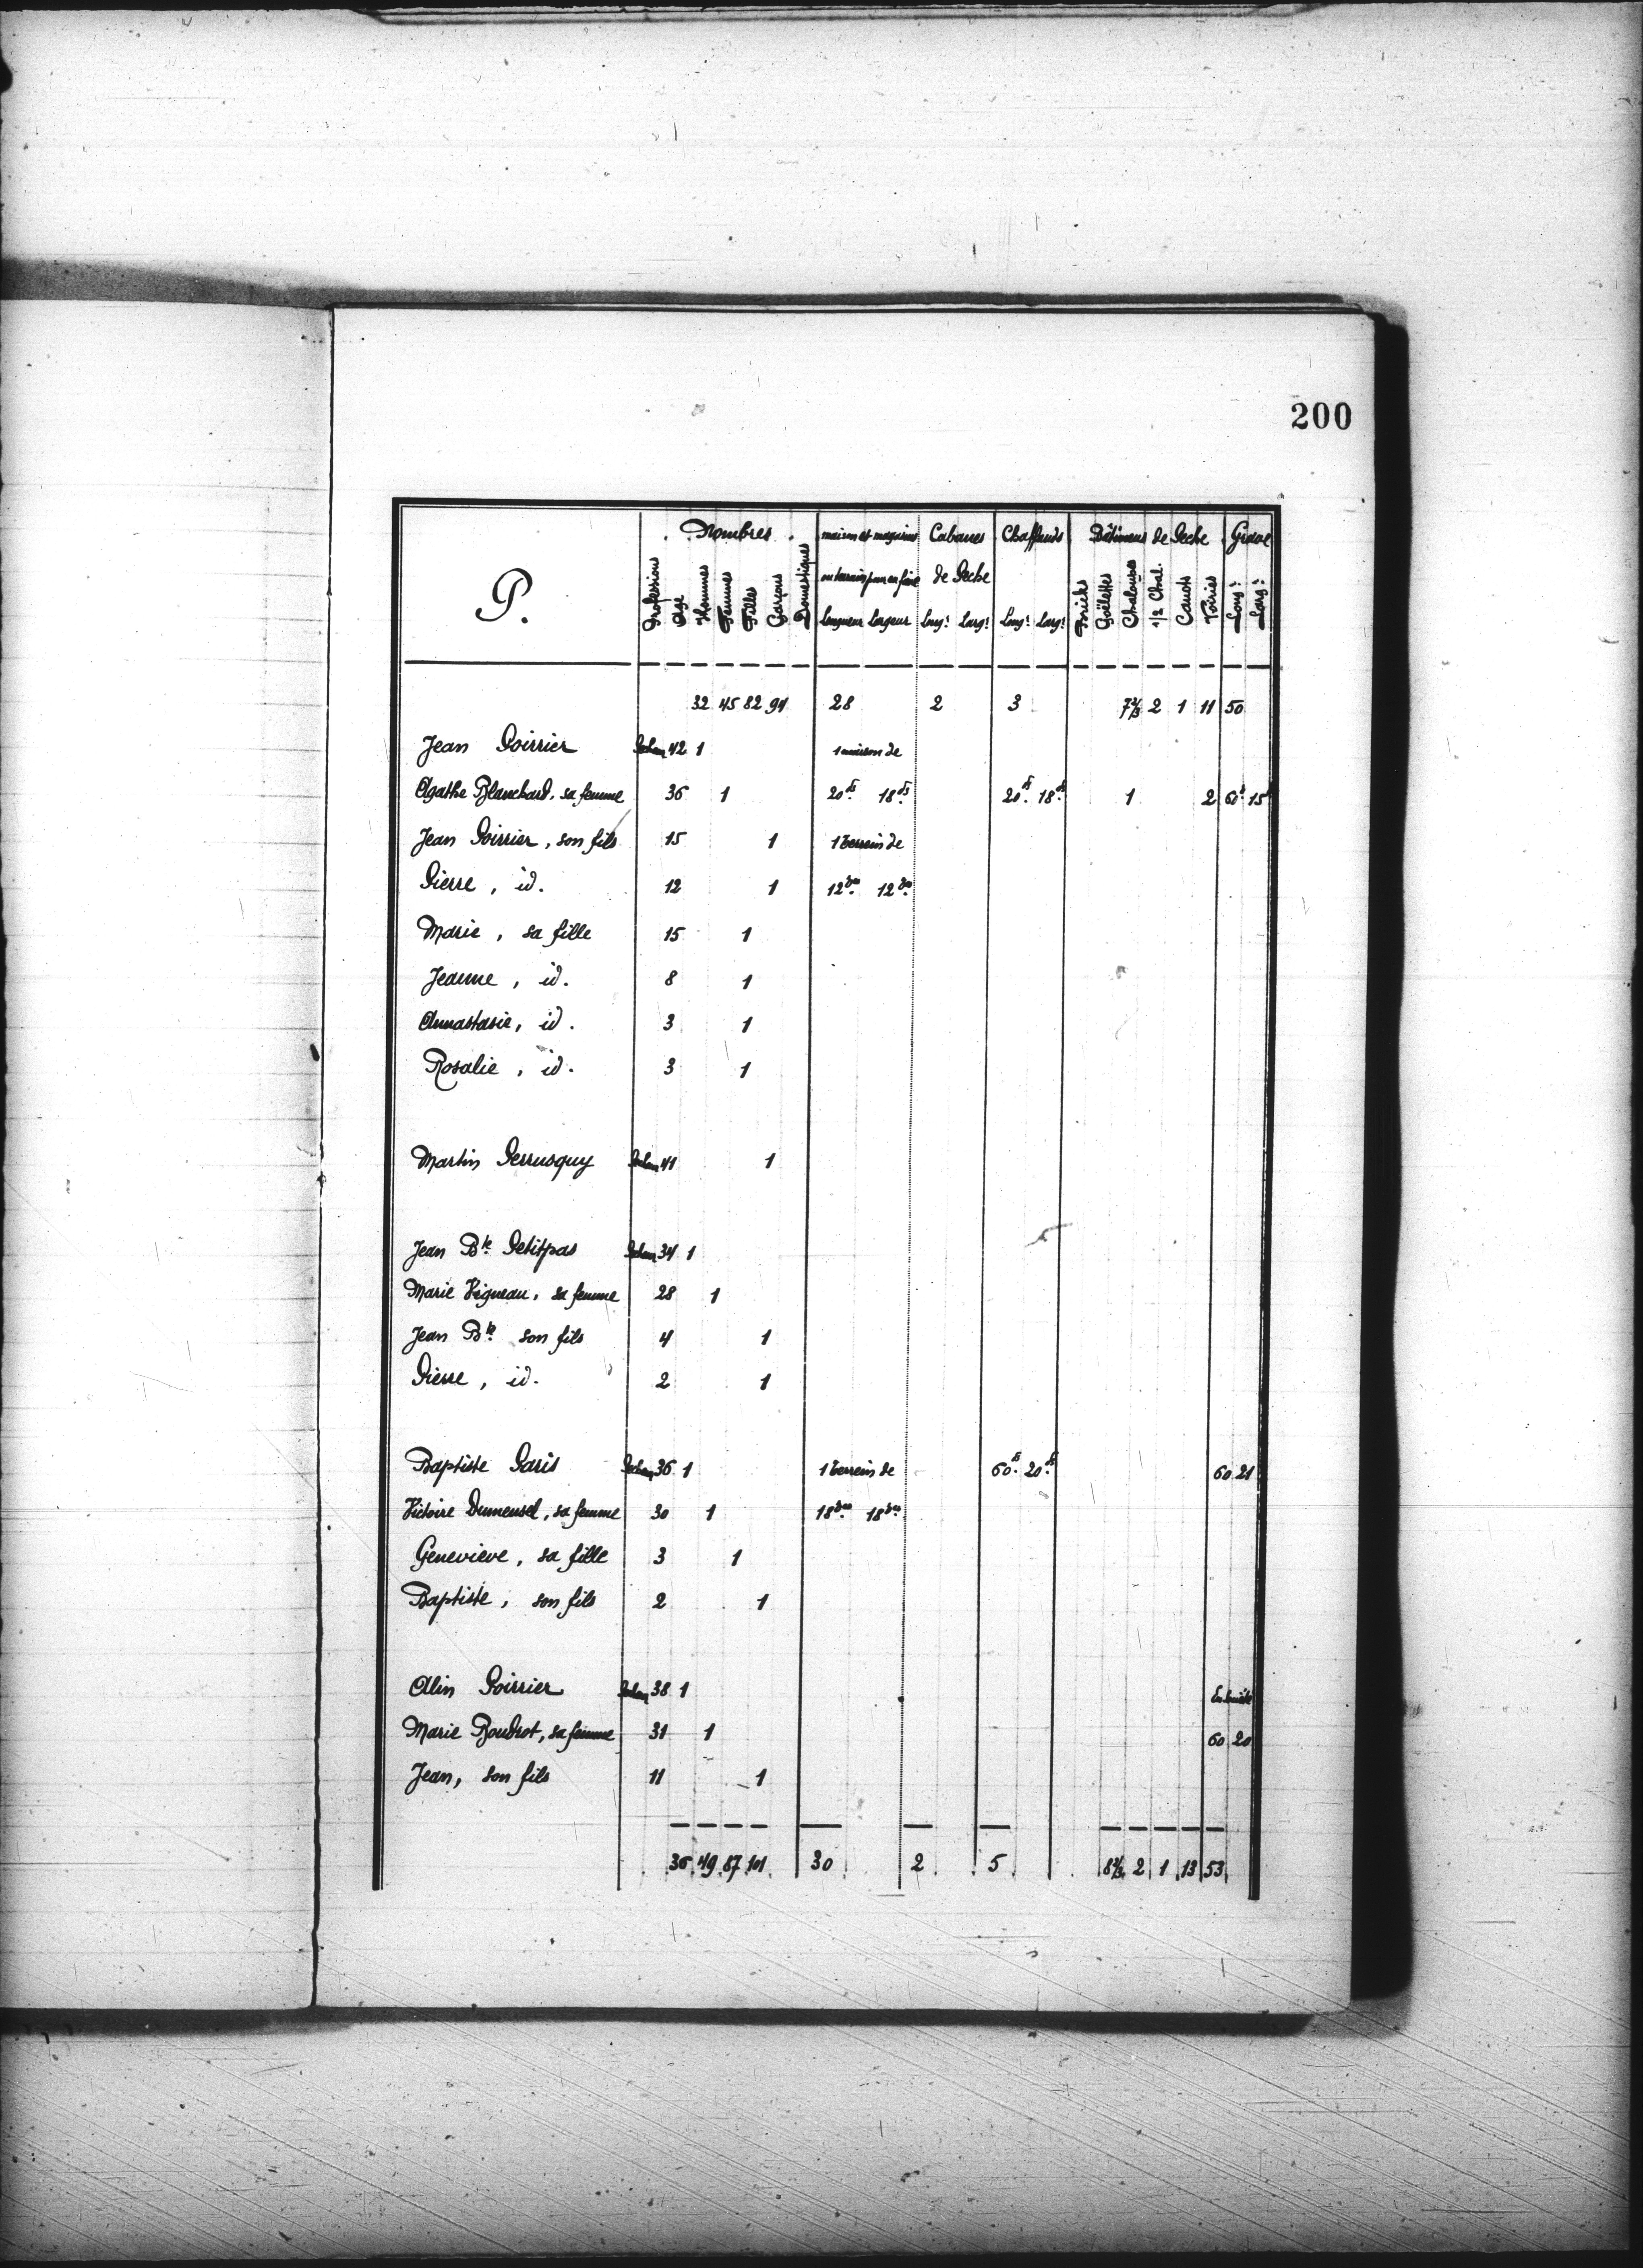 200
P.
Nombres maison et magasins Cabanes Chaffauds Bâtimens de Peche Grave
ou terrain pour en faire de Peche
Professions Age Hommes Femmes Filles Garçons Domestiques Longueur Largeur Long.r Larg.r Long.r Larg.r Bricks Goëlettes Chaloupes 1/2 Chal. Canots Voiries Long.r Larg.r
32 45 82 94 28 2 3 7 2/3 2 1 11 50
Jean Poirrier 42 1 1 maison de
Agathe Blanchard, sa femme 36 1 20 ds 18 ds 20 ds 18 ds 1 2 60 15
Jean Poirrier, son fils 15 1 1 terrein de
Pierre, id. 12 1 12 12
Marie, sa fille 15 1
Jeanne, id. 8 1
Annastasie, id. 3 1
Rosalie, id. 3 1
Martin Perrusquy 41 1
Jean Bte Petitpas 34 1
Marie Vigneau, sa femme 28 1
Jean Bte son fils 4 1
Pierre, id. 2 1
Baptiste Paris 36 1 1 terrein de 60 ds 20 ds 60 21
Victoire Dumensel, sa femme 30 1 18 18
Genevieve, sa fille 3 1
Baptiste, son fils 2 1
Alin Poirrier 38 1
Marie Boudrot, sa femme 31 1 60 20
Jean, son fils 11 1
36 49 87 101 30 2 5 8 2/3 2 1 13 53